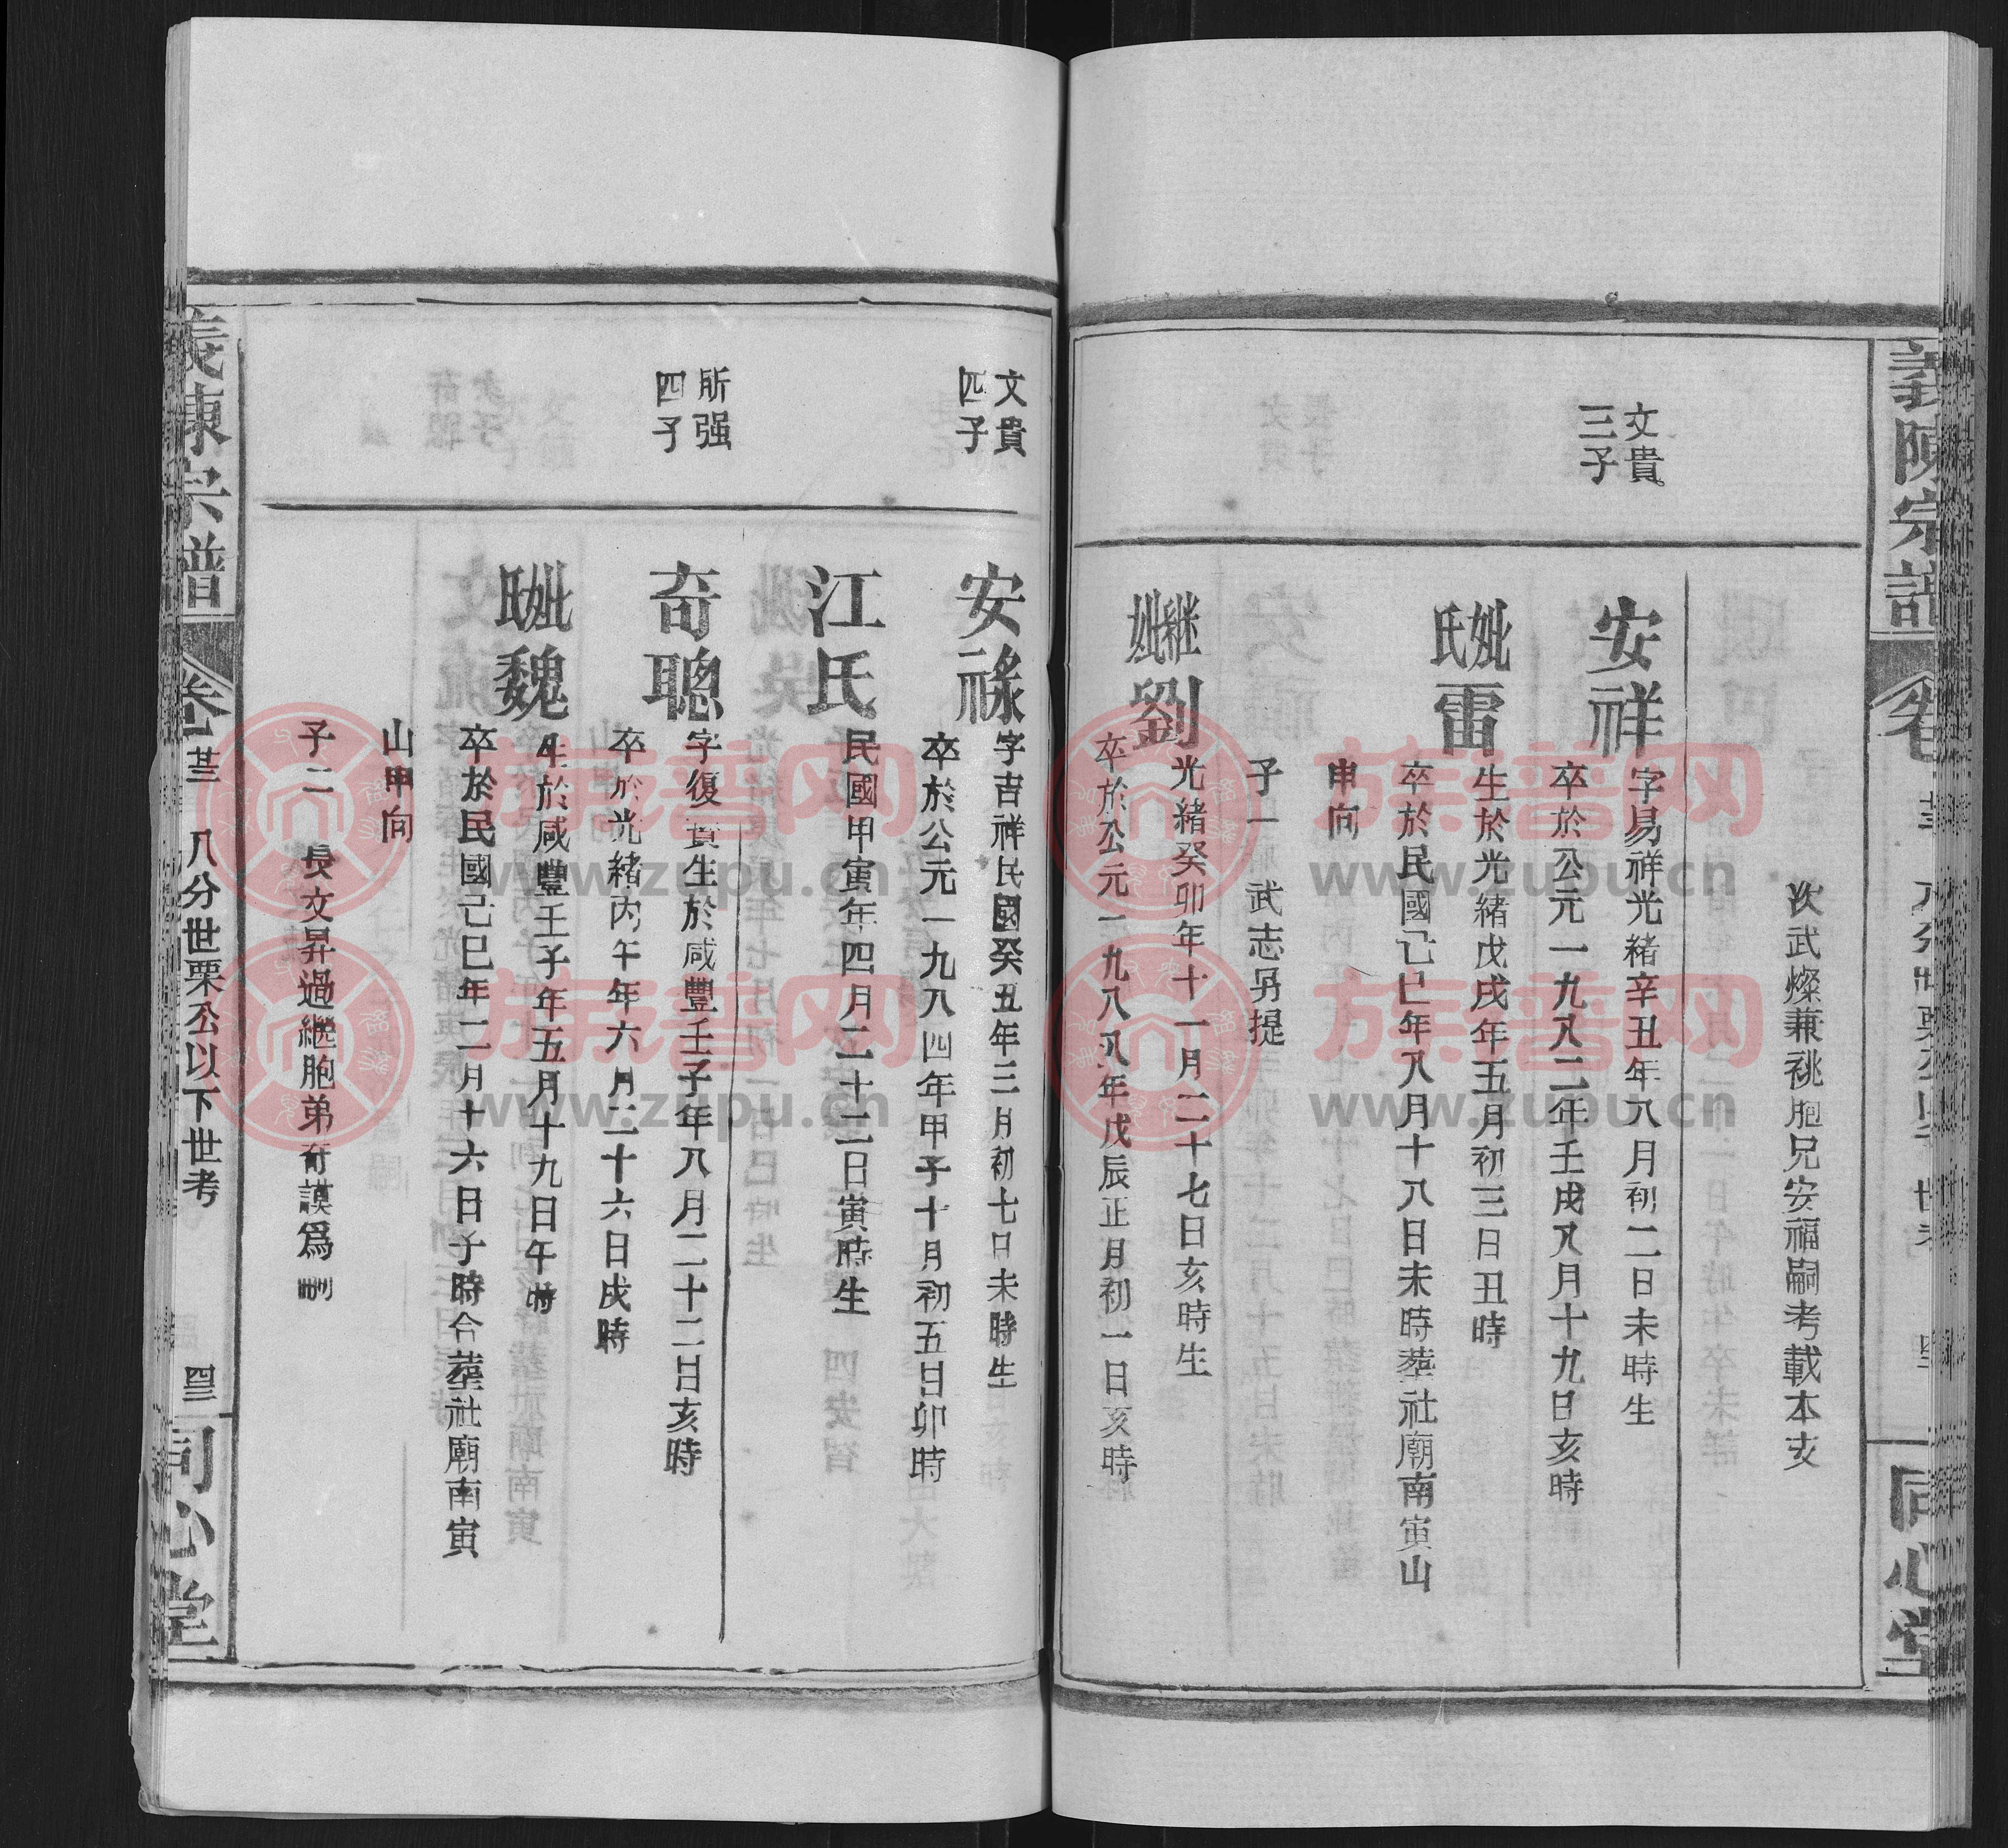 義陳宗譜
同心堂
次武燦兼祧胞兄安福嗣考載本支
文貴
三子
安祥
字易祥光緒辛丑年八月初二日未時生
卒於公元一九八二年壬戌八月十九日亥時
妣雷氏
生於光緒戊戌年五月初三日丑時
卒於民國己巳年八月十八日未時塟社廟南寅山
申向
子一 武志另提
継妣劉
光緒癸卯年十一月二十七日亥時生
卒於公元一九八八年戊辰正月初一日亥時
文貴
四子
安祿
字吉祥民國癸丑年三月初七日未時生
卒於公元一九八四年甲子十月初五日卯時
江氏
民國甲寅年四月二十二日寅時生
所强
四子
奇聰
字復貴生於咸豐壬子年八月二十二日亥時
卒於光緒丙午年六月二十六日戌時
妣魏氏
生於咸豐壬子年五月十九日午時
卒於民國己巳年二月十六日子時合塟社廟南寅
山申向
子二 長文昇過繼胞弟奇謨爲嗣
義陳宗譜
卷 廿三 八分世栗公以下世考 四三
同心堂
族譜网
www.zupu.cn
族譜网
www.zupu.cn
族譜网
www.zupu.cn
族譜网
www.zupu.cn